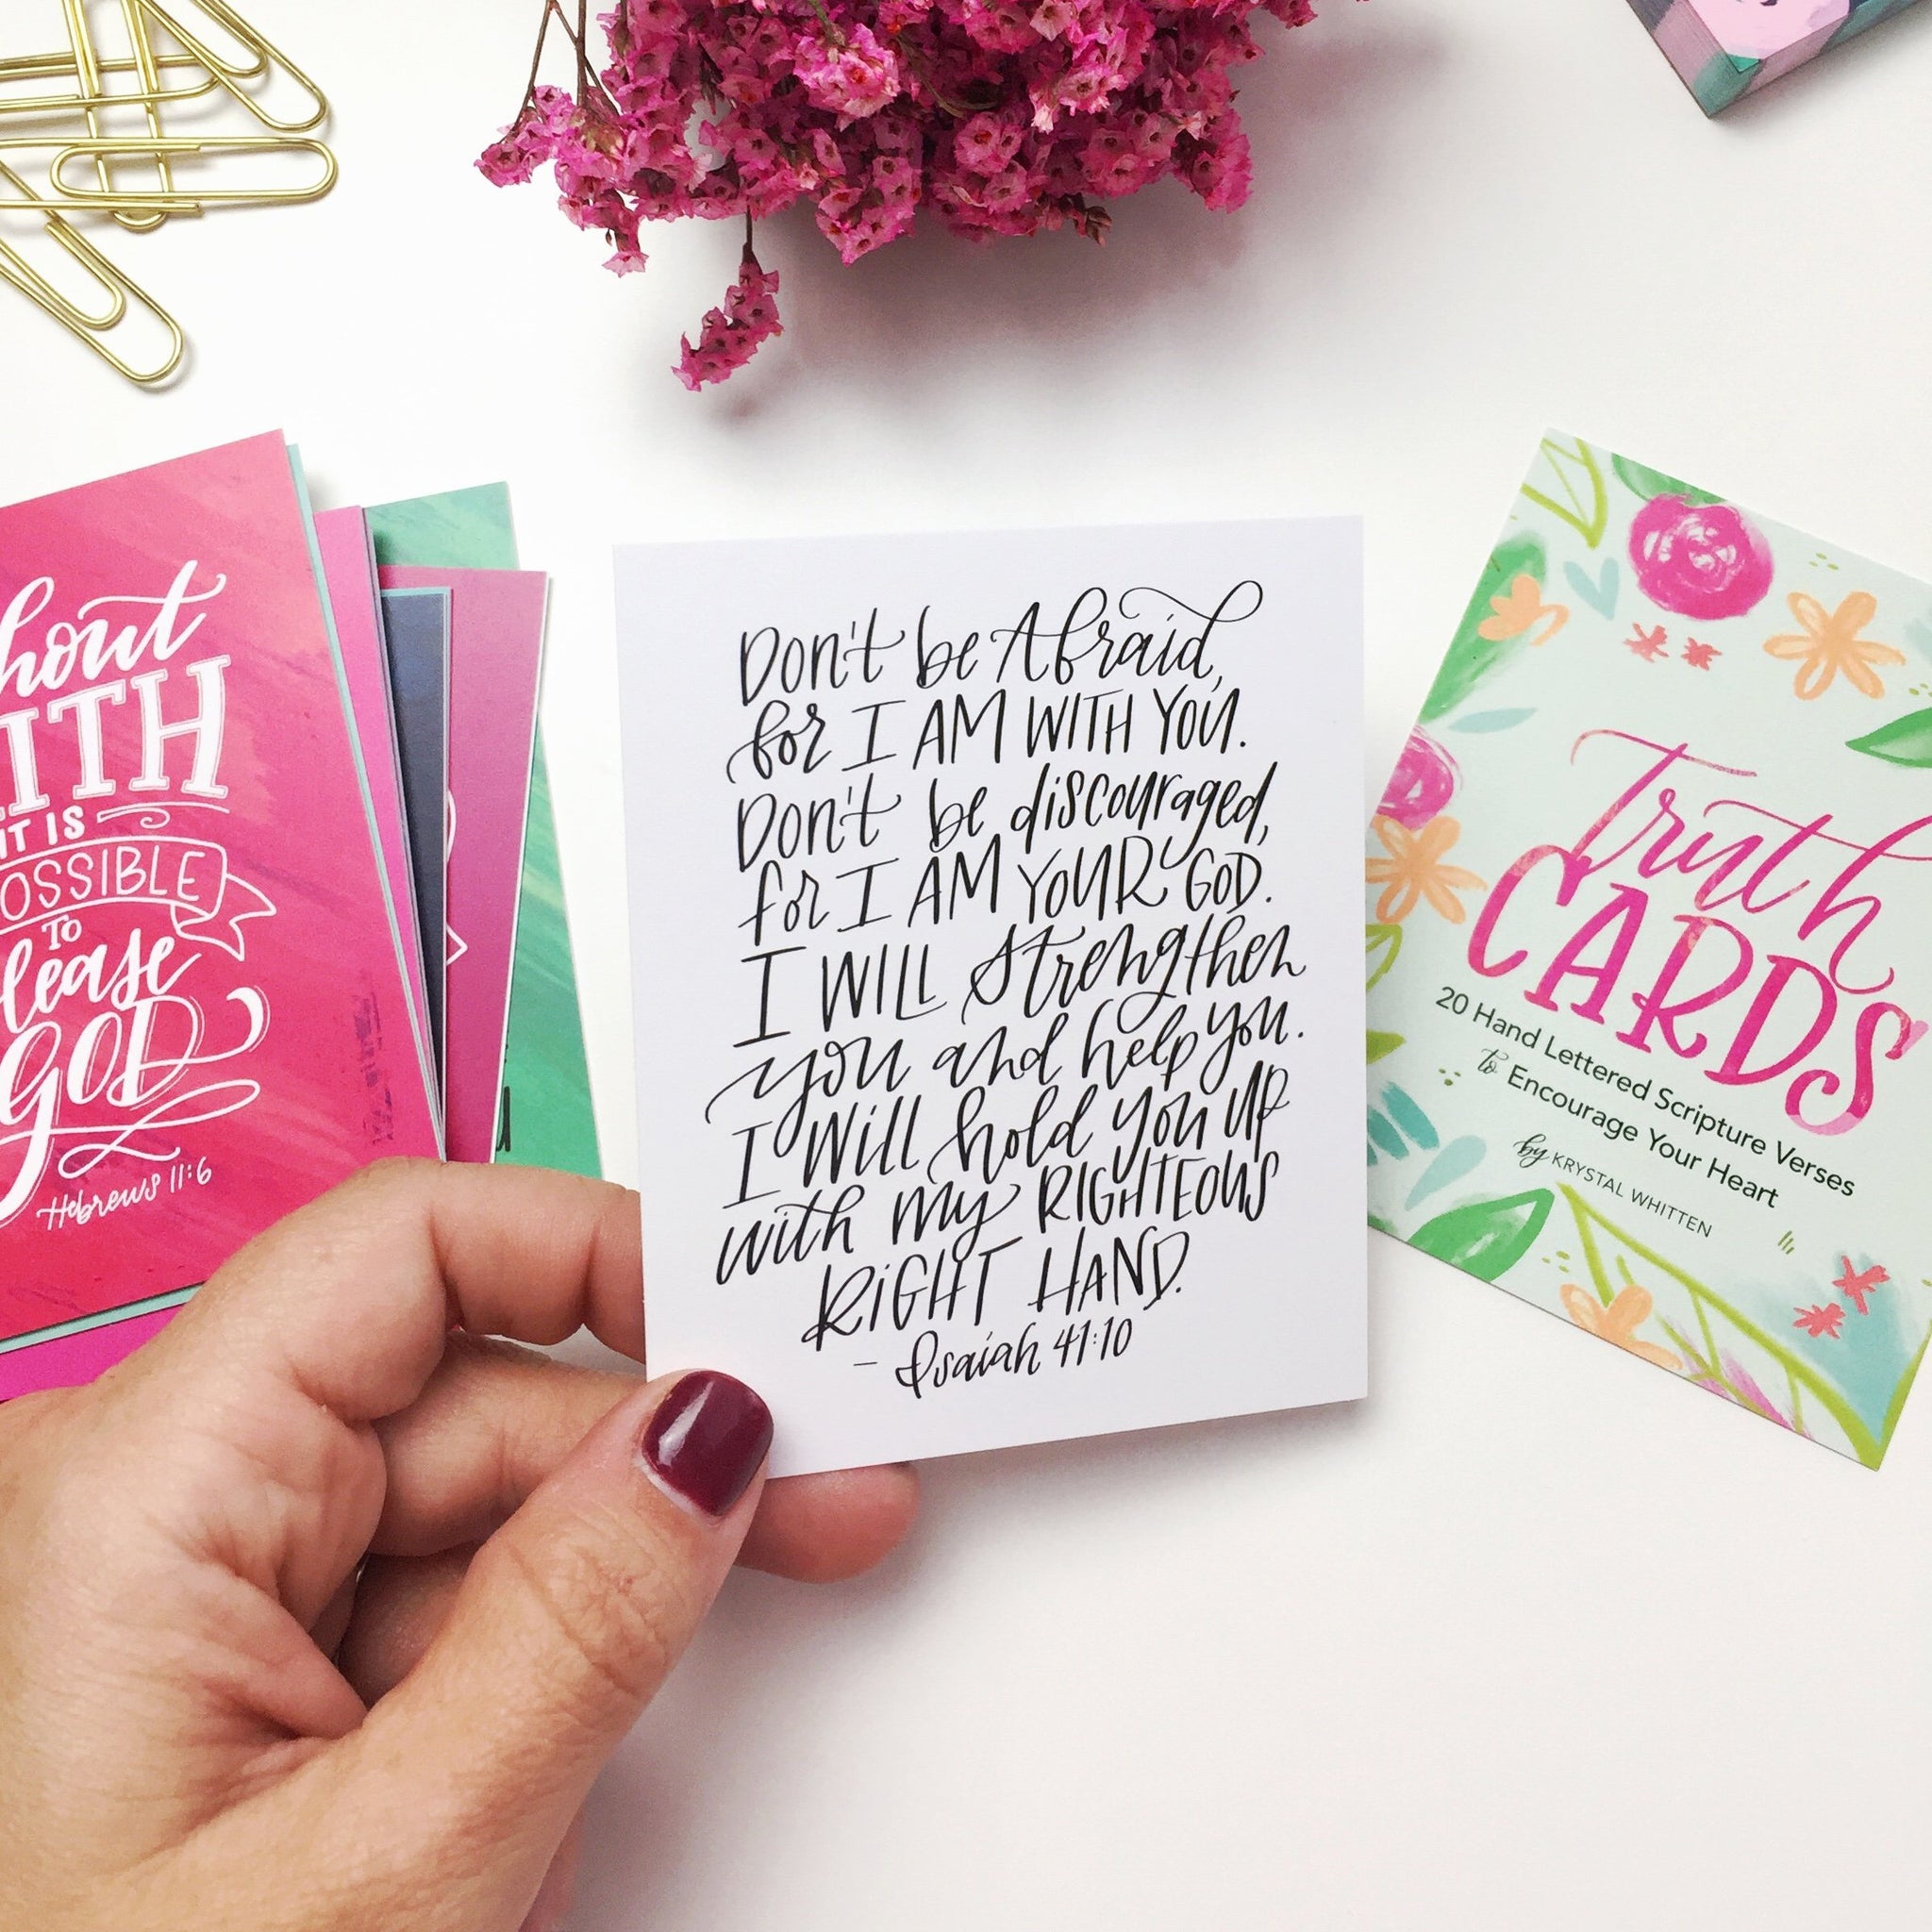 hout
ITH
IT IS
OSSIBLE
TO
lease
GOD
Hebrews 11:6
Don't be Afraid,
for I AM WITH YOU.
Don't be discouraged,
for I AM YOUR GOD.
I WILL Strengthen
you and help you.
I Will hold you up
with my RIGHTEOUS
RIGHT HAND.
- Isaiah 41:10
Truth
CARDS
20 Hand Lettered Scripture Verses
to Encourage Your Heart
by KRYSTAL WHITTEN